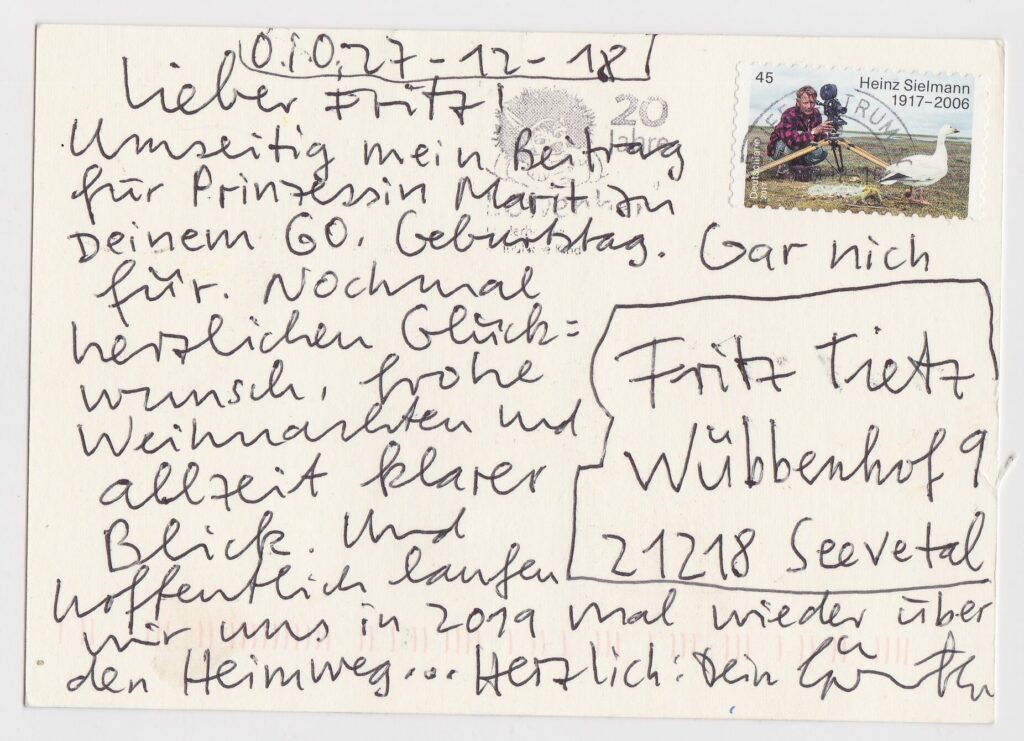 O.,O. 27-12-18
Lieber Fritz!
Umseitig mein Beitrag
für Prinzessin Marit zu
Deinem 60. Geburtstag. Gar nich
für. Nochmal
herzlichen Glück=
wunsch, frohe
Weihnachten und
allzeit klarer
Blick. Und
hoffentlich laufen
wir uns in 2019 mal wieder über
den Heimweg... Herzlich: Dein
Fritz Tietz
Wübbenhof 9
21218 Seevetal
45
Heinz Sielmann
1917–2006
20
Jahre